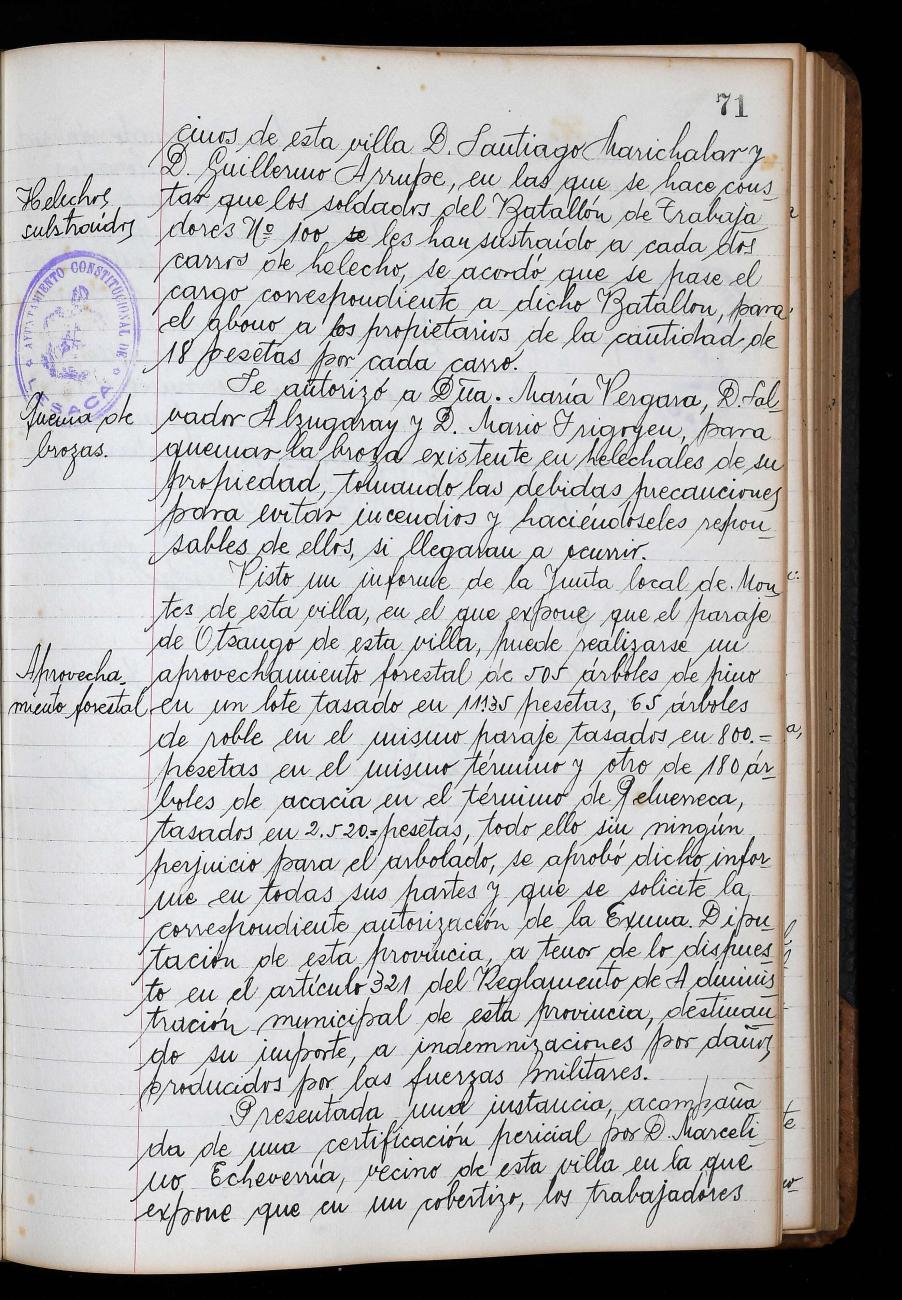 71
cinos de esta villa D. Santiago Marichalar y
D. Guillermo Arrupe, en las que se hace cons-
tar que los soldados del Batallón de Trabaja
dores Nº 100 se les han sustraído a cada dos
carros de helecho, se acordó que se pase el
cargo correspondiente a dicho Batallon, para
el abono a los propietarios de la cantidad de
18 pesetas por cada carro.
Helechos
substraídos
AYUNTAMIENTO CONSTITUCIONAL DE LESACA
Se autorizó a Dña. María Vergara, D. Sal-
vador Alzugaray y D. Mario Irigoyen, para
quemar la broza existente en helechales de su
propiedad, tomando las debidas precauciones
para evitar incendios y haciéndoseles repon-
sables de ellos, si llegaran a ocurrir.
Quema de
brozas.
Visto un informe de la Junta local de Mon
tes de esta villa, en el que expone que el paraje
de Otsango de esta villa, puede realizarse un
aprovechamiento forestal de 505 árboles de pino
en un lote tasado en 11135 pesetas, 65 árboles
de roble en el mismo paraje tasados en 800.=
pesetas en el mismo término y otro de 180 ár-
boles de acacia en el término de
tasados en 2.520.= pesetas, todo ello sin ningún
perjuicio para el arbolado, se aprobó dicho infor-
me en todas sus partes y que se solicite la
correspondiente autorización de la Exma. Dipu-
tación de esta provincia, a tenor de lo dispues-
to en el artículo 321 del Reglamento de Adminis
tración municipal de esta provincia, destinan
do su importe, a indemnizaciones por daños
producidos por las fuerzas militares.
Aprovecha-
miento forestal
Presentada una instancia, acompaña
da de una certificación pericial por D. Marceli-
no Echeverría, vecino de esta villa en la que
expone que en un cobertizo, los trabajadores